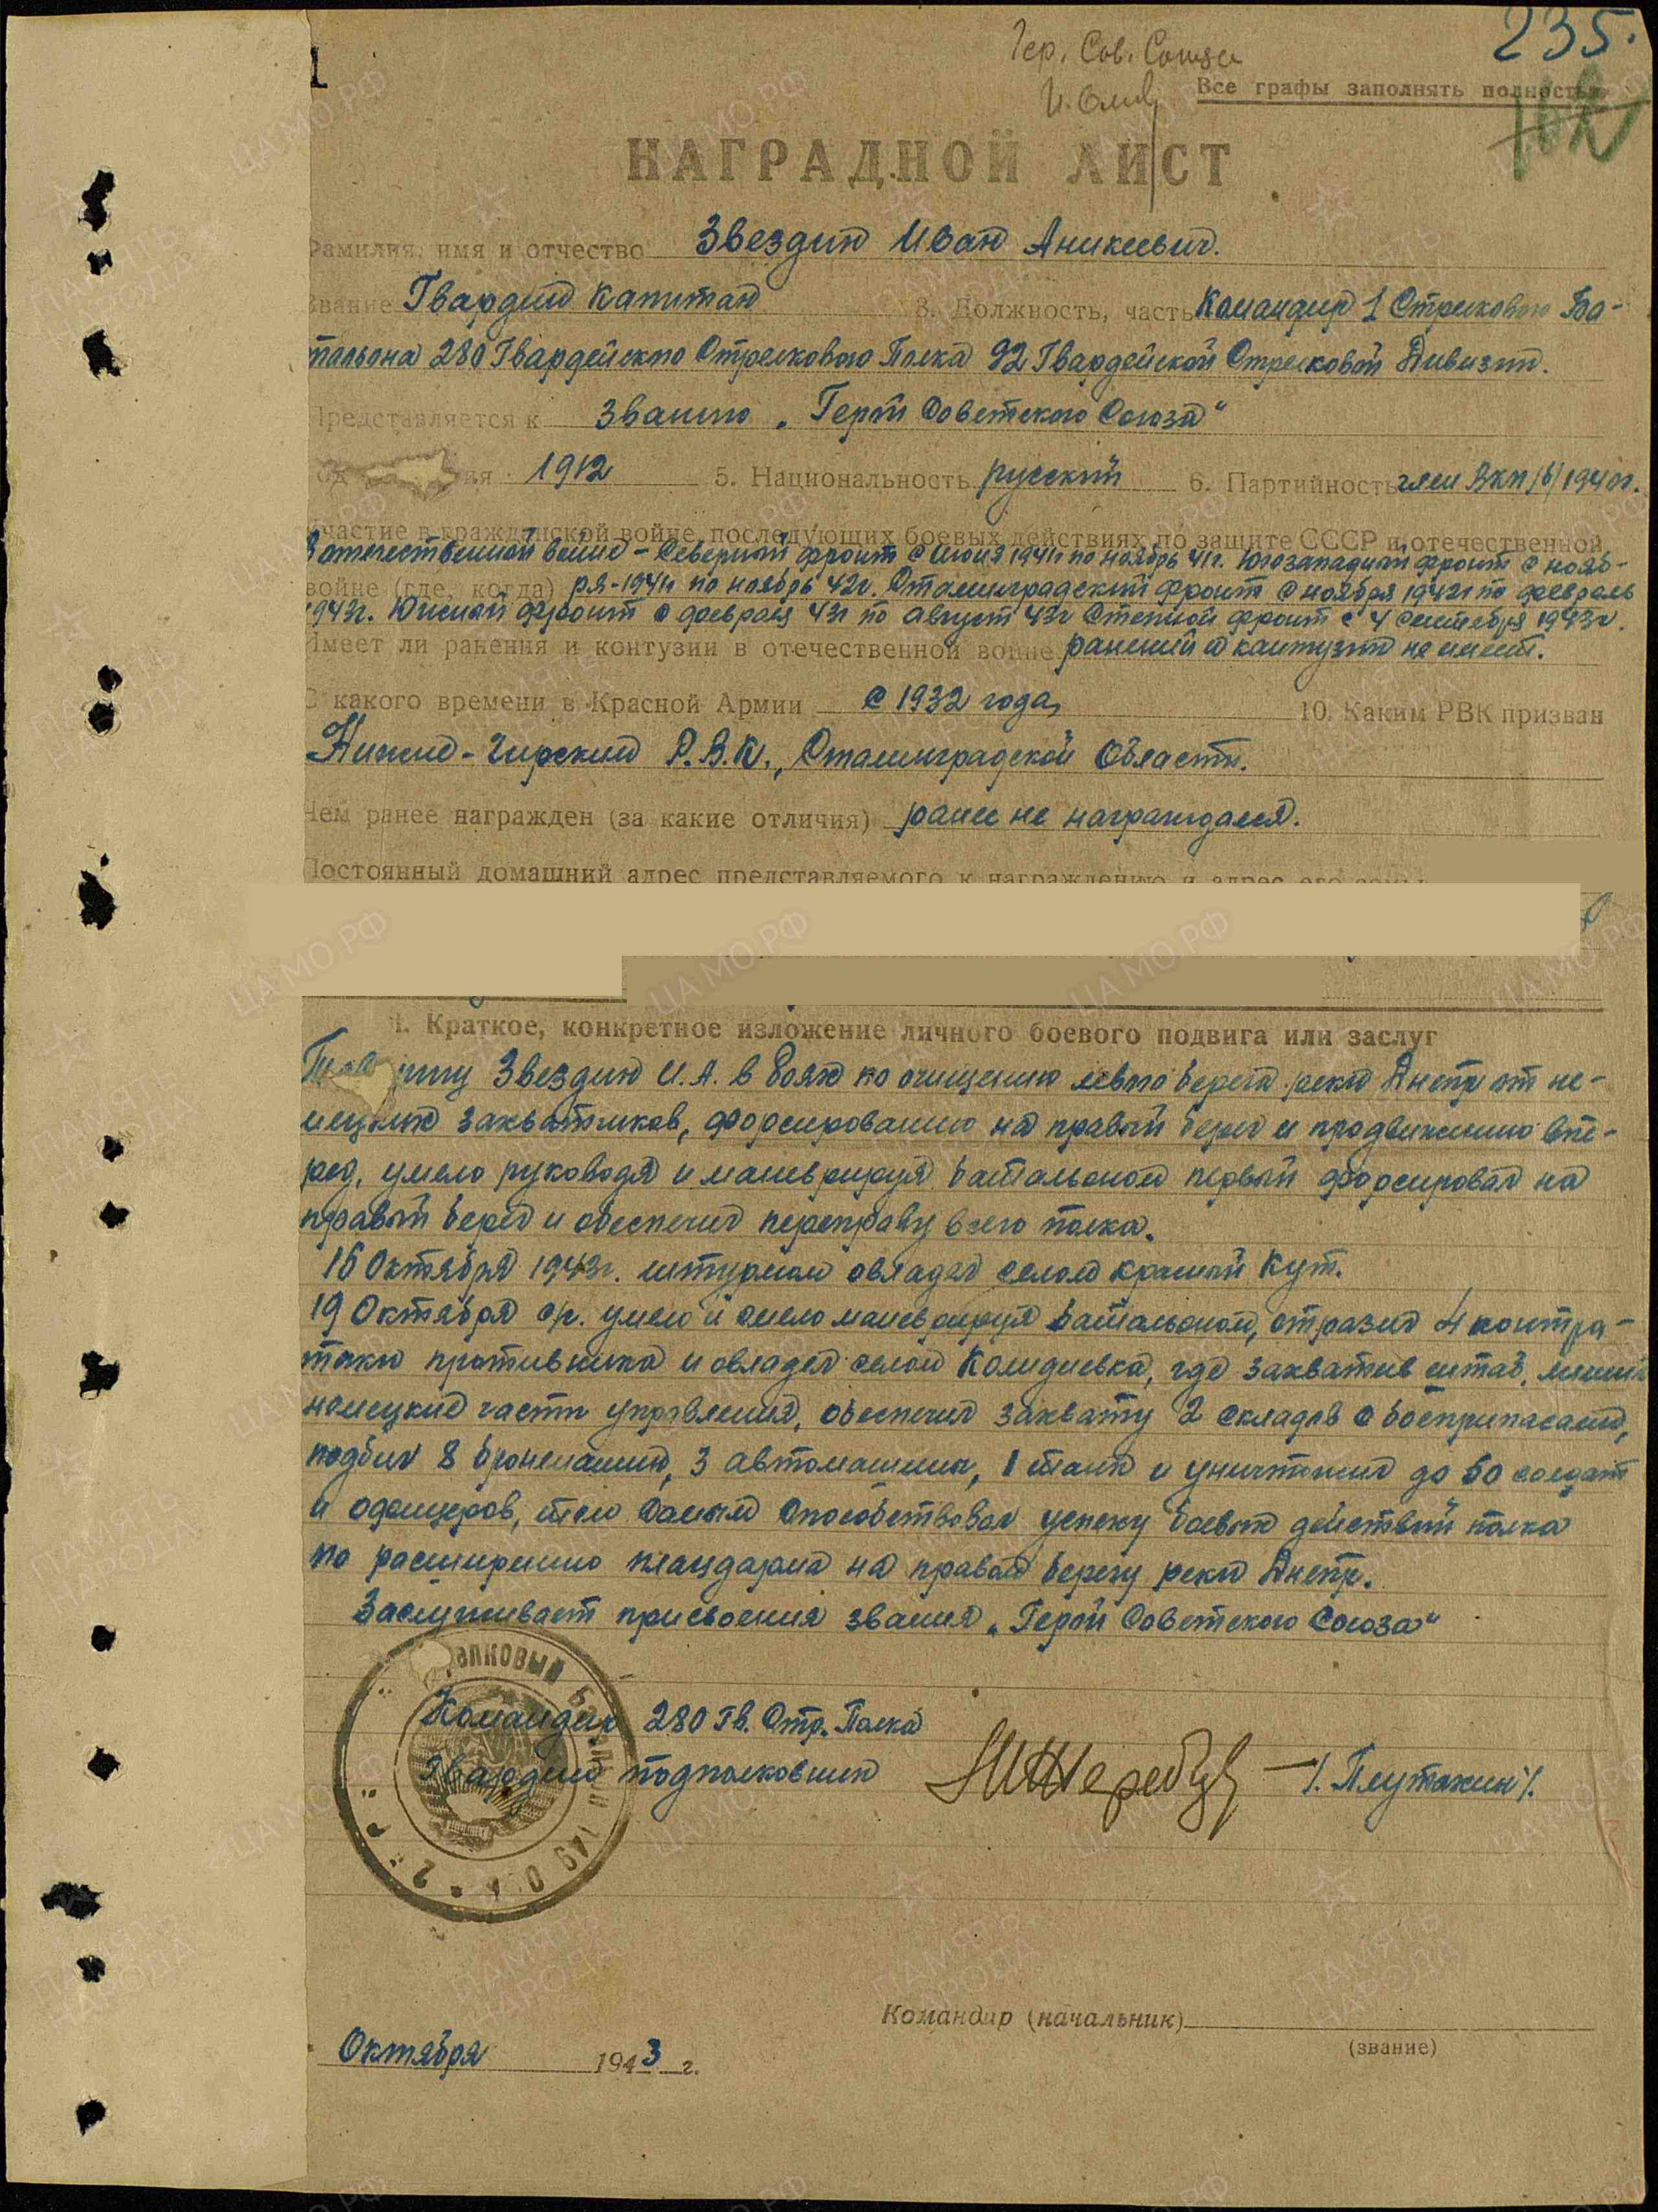 235.
Гер. Сов. Союза
Все графы заполнять полностью
1
НАГРАДНОЙ ЛИСТ
Фамилия, имя и отчество Звездин Иван Аникеевич.
Звание Гвардии Капитан 3. Должность, часть Командир 1 Стрелкового Ба-
тальона 280 Гвардейского Стрелкового Полка 92 Гвардейской Стрелковой Дивизии.
Представляется к званию „Герой Советского Союза"
1912 5. Национальность русский 6. Партийность член ВКП/б/ 1940г.
Участие в гражданской войне, последующих боевых действиях по защите СССР и отечественной
В отечественной войне - Северный фронт с Июля 1941г по ноябрь 41г. Югозападный фронт с нояб-
войне (где, когда) ря-1941г по ноябрь 42г. Сталинградский фронт с ноября 1942г по февраль
1943г. Южный фронт с февраля 43г по август 43г Степной фронт с 4 сентября 1943г.
Имеет ли ранения и контузии в отечественной войне ранений и контузии не имеет.
С какого времени в Красной Армии с 1932 года, 10. Каким РВК призван
Нижне-Чирским Р.В.К., Сталинградской Области.
Чем ранее награжден (за какие отличия) ранее не награждался.
Постоянный домашний адрес представляемого к награждению и адрес его семьи
1. Краткое, конкретное изложение личного боевого подвига или заслуг
Звездин И.А. в боях по очищению левого берега реки Днепр от не-
мецких захватчиков, форсированию на правый берег и продвижению впе-
ред, умело руководя и маневрируя батальоном первый форсировал на
правый берег и обеспечил переправу всего полка.
16 Октября 1943г. штурмом овладел селом Красный Кут.
19 Октября с/г. умело и смело маневрируя батальоном, отразил 4 контра-
таки противника и овладел селом Компанеевка, где захватив штаб, лишил
немецкие части управления, обеспечил захвату 2 складов с боеприпасами,
подбил 8 бронемашин, 3 автомашины, 1 танк и уничтожил до 60 солдат
и офицеров, тем самым способствовал успеху боевых действий полка
по расширению плацдарма на правом берегу реки Днепр.
Заслуживает присвоения звания „Герой Советского Союза"
Командир 280 Гв. Стр. Полка
Гвардии подполковник /. Плутахин /.
Командир (начальник)
(звание)
Октября 1943 г.